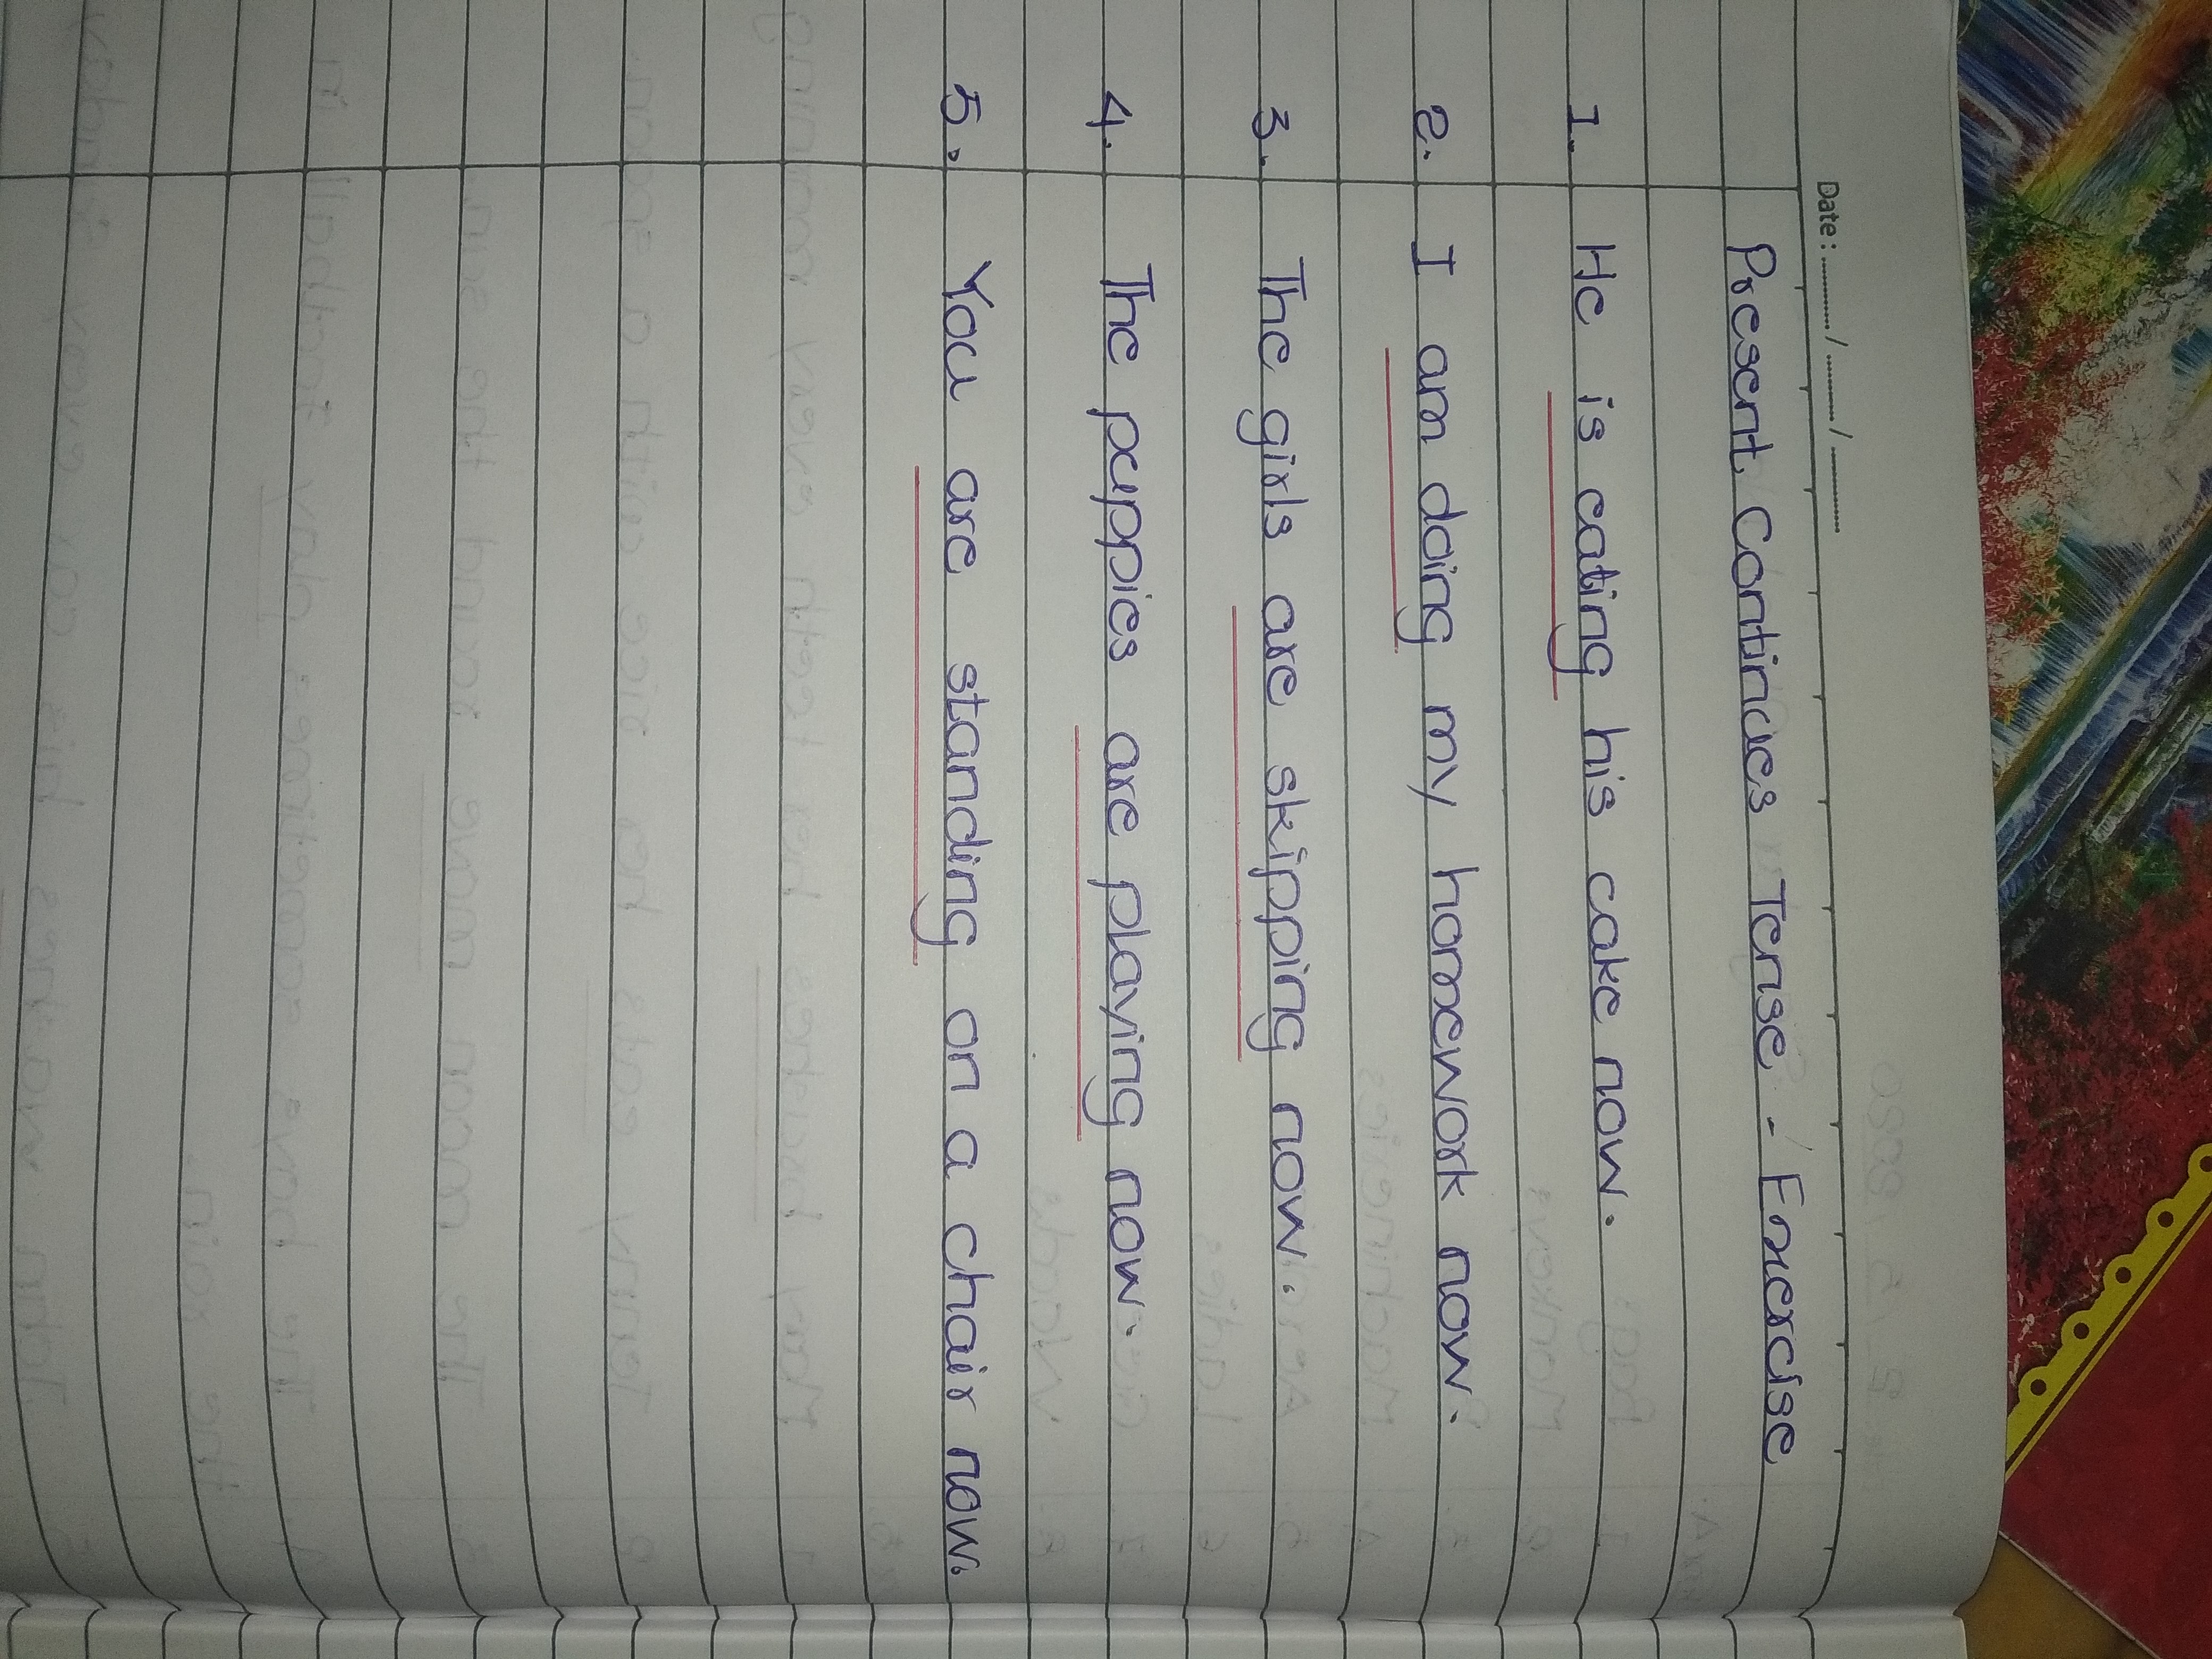 Date: ........../........../..........
Present Continues Tense - Exercise
1. He is eating his cake now.
2. I am doing my homework now.
3. The girls are skipping now.
4. The puppies are playing now.
5. You are standing on a chair now.